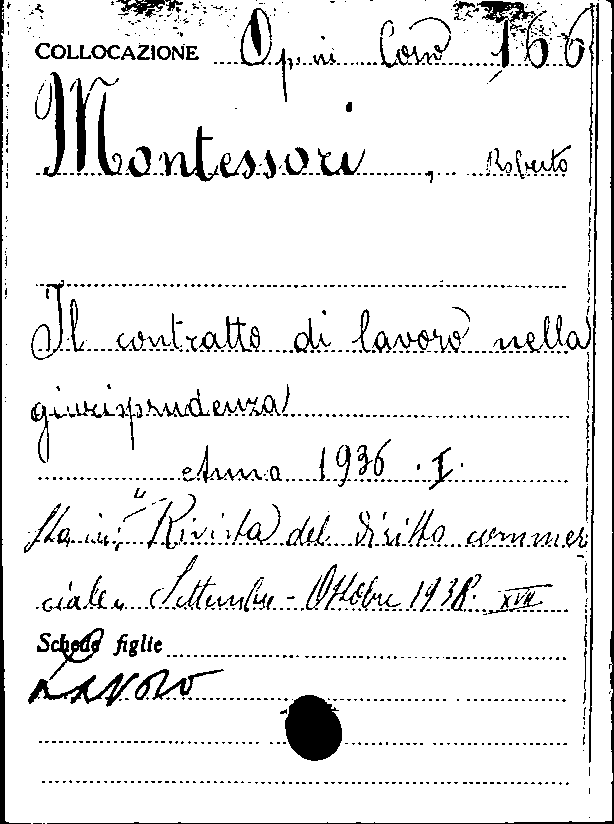 COLLOCAZIONE Op. 166
Montessori, Roberto
Il contratto di lavoro nella
giurisprudenza
Anno 1936 . I.
Sta in: "Rivista del diritto commer
ciale" Settembre - Ottobre 1938. XVII
Schede figlie
Lavoro